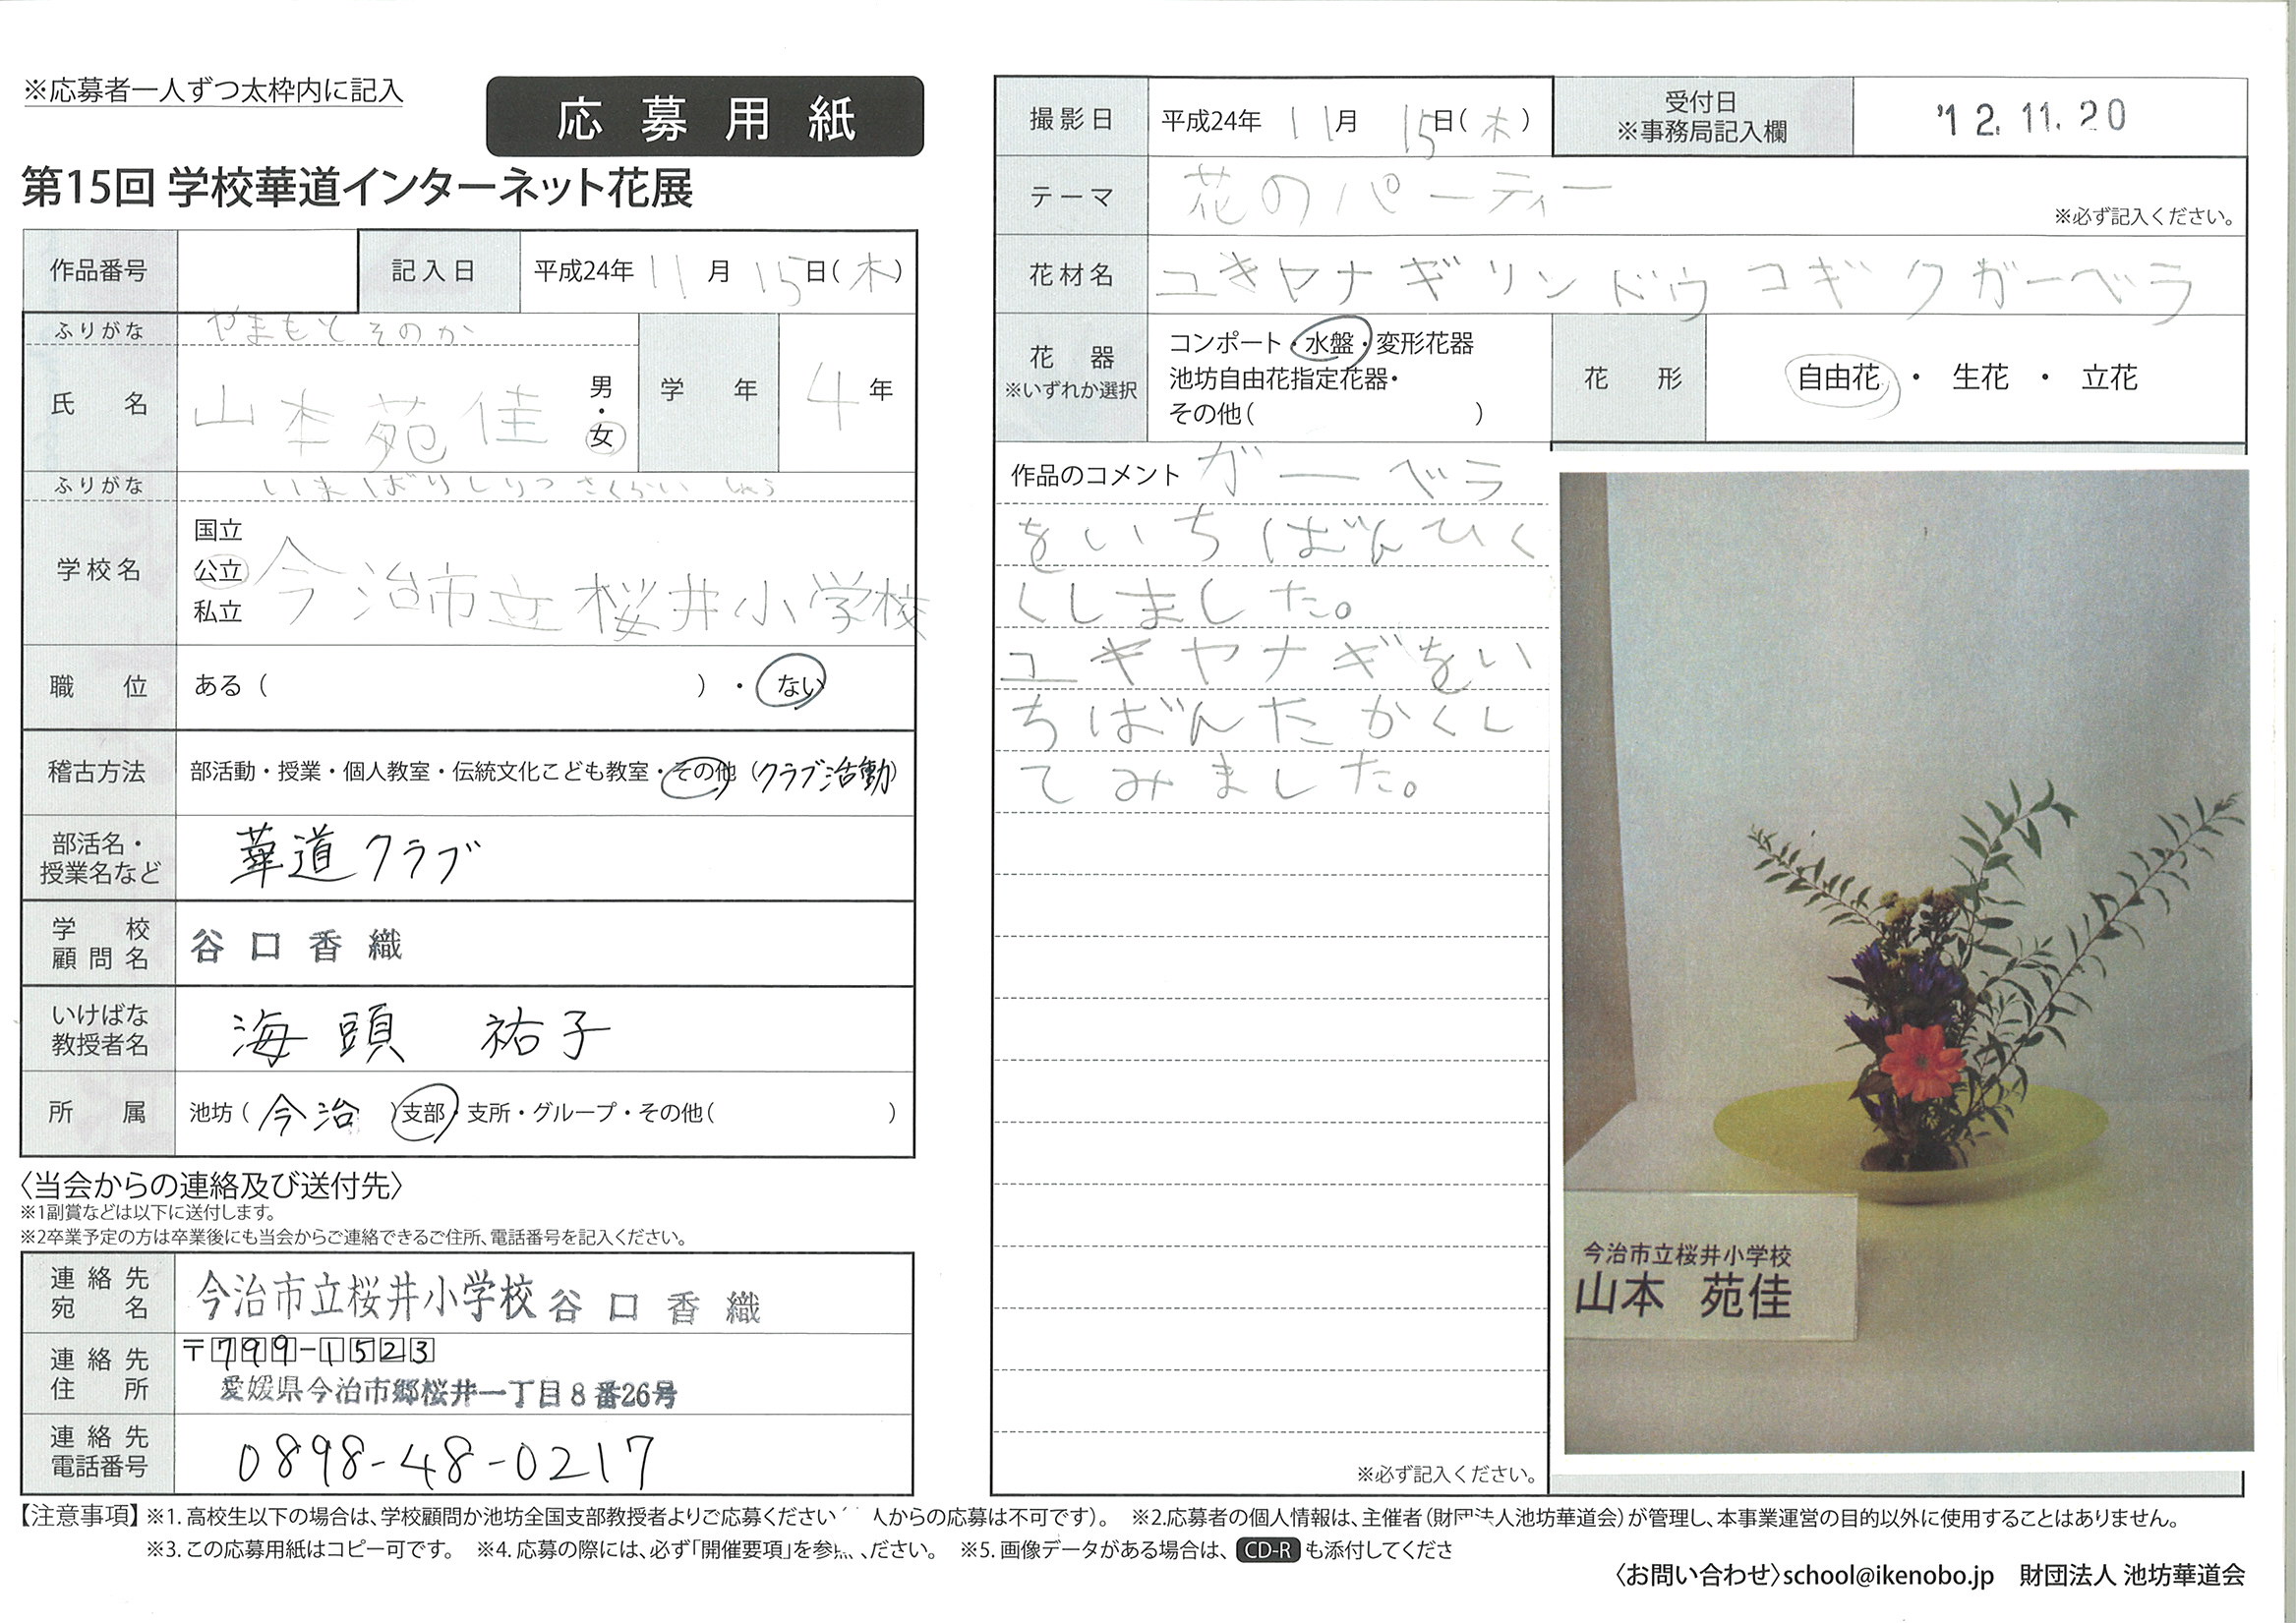 ※応募者一人ずつ太枠内に記入
応募用紙
第15回 学校華道インターネット花展
作品番号
記入日 平成24年 11月 15日(木)
ふりがな やまもとそのか
氏名 山本苑佳 男・女
学年 4年
ふりがな いまばりしりつさくらい
学校名 国立 公立 私立 今治市立桜井小学校
職位 ある( )・ない
稽古方法 部活動・授業・個人教室・伝統文化こども教室・その他(クラブ活動)
部活名・授業名など 華道クラブ
学校顧問名 谷口香織
いけばな教授者名 海頭 祐子
所属 池坊(今治)支部・支所・グループ・その他( )
〈当会からの連絡及び送付先〉
※1副賞などは以下に送付します。
※2卒業予定の方は卒業後にも当会からご連絡できるご住所、電話番号を記入ください。
連絡先宛名 今治市立桜井小学校 谷口香織
連絡先住所 〒799-1523
愛媛県今治市郷桜井一丁目8番26号
連絡先電話番号 0898-48-0217
撮影日 平成24年 11月 15日(木)
受付日 ※事務局記入欄 '12.11.20
テーマ 花のパーティー
※必ず記入ください。
花材名 ユきヤナギリンドウコギクガーベラ
花器 ※いずれか選択
コンポート・水盤・変形花器
池坊自由花指定花器・
その他( )
花形 自由花・生花・立花
作品のコメント ガーベラ
をいちばんひく
くしました。
ユギヤナギをい
ちばんたかくし
てみました。
※必ず記入ください。
今治市立桜井小学校
山本 苑佳
【注意事項】※1. 高校生以下の場合は、学校顧問か池坊全国支部教授者よりご応募ください 人からの応募は不可です)。 ※2.応募者の個人情報は、主催者(財団法人池坊華道会)が管理し、本事業運営の目的以外に使用することはありません。
※3. この応募用紙はコピー可です。 ※4. 応募の際には、必ず「開催要項」を参 ださい。 ※5. 画像データがある場合は、CD-Rも添付してくださ
〈お問い合わせ〉school@ikenobo.jp 財団法人 池坊華道会